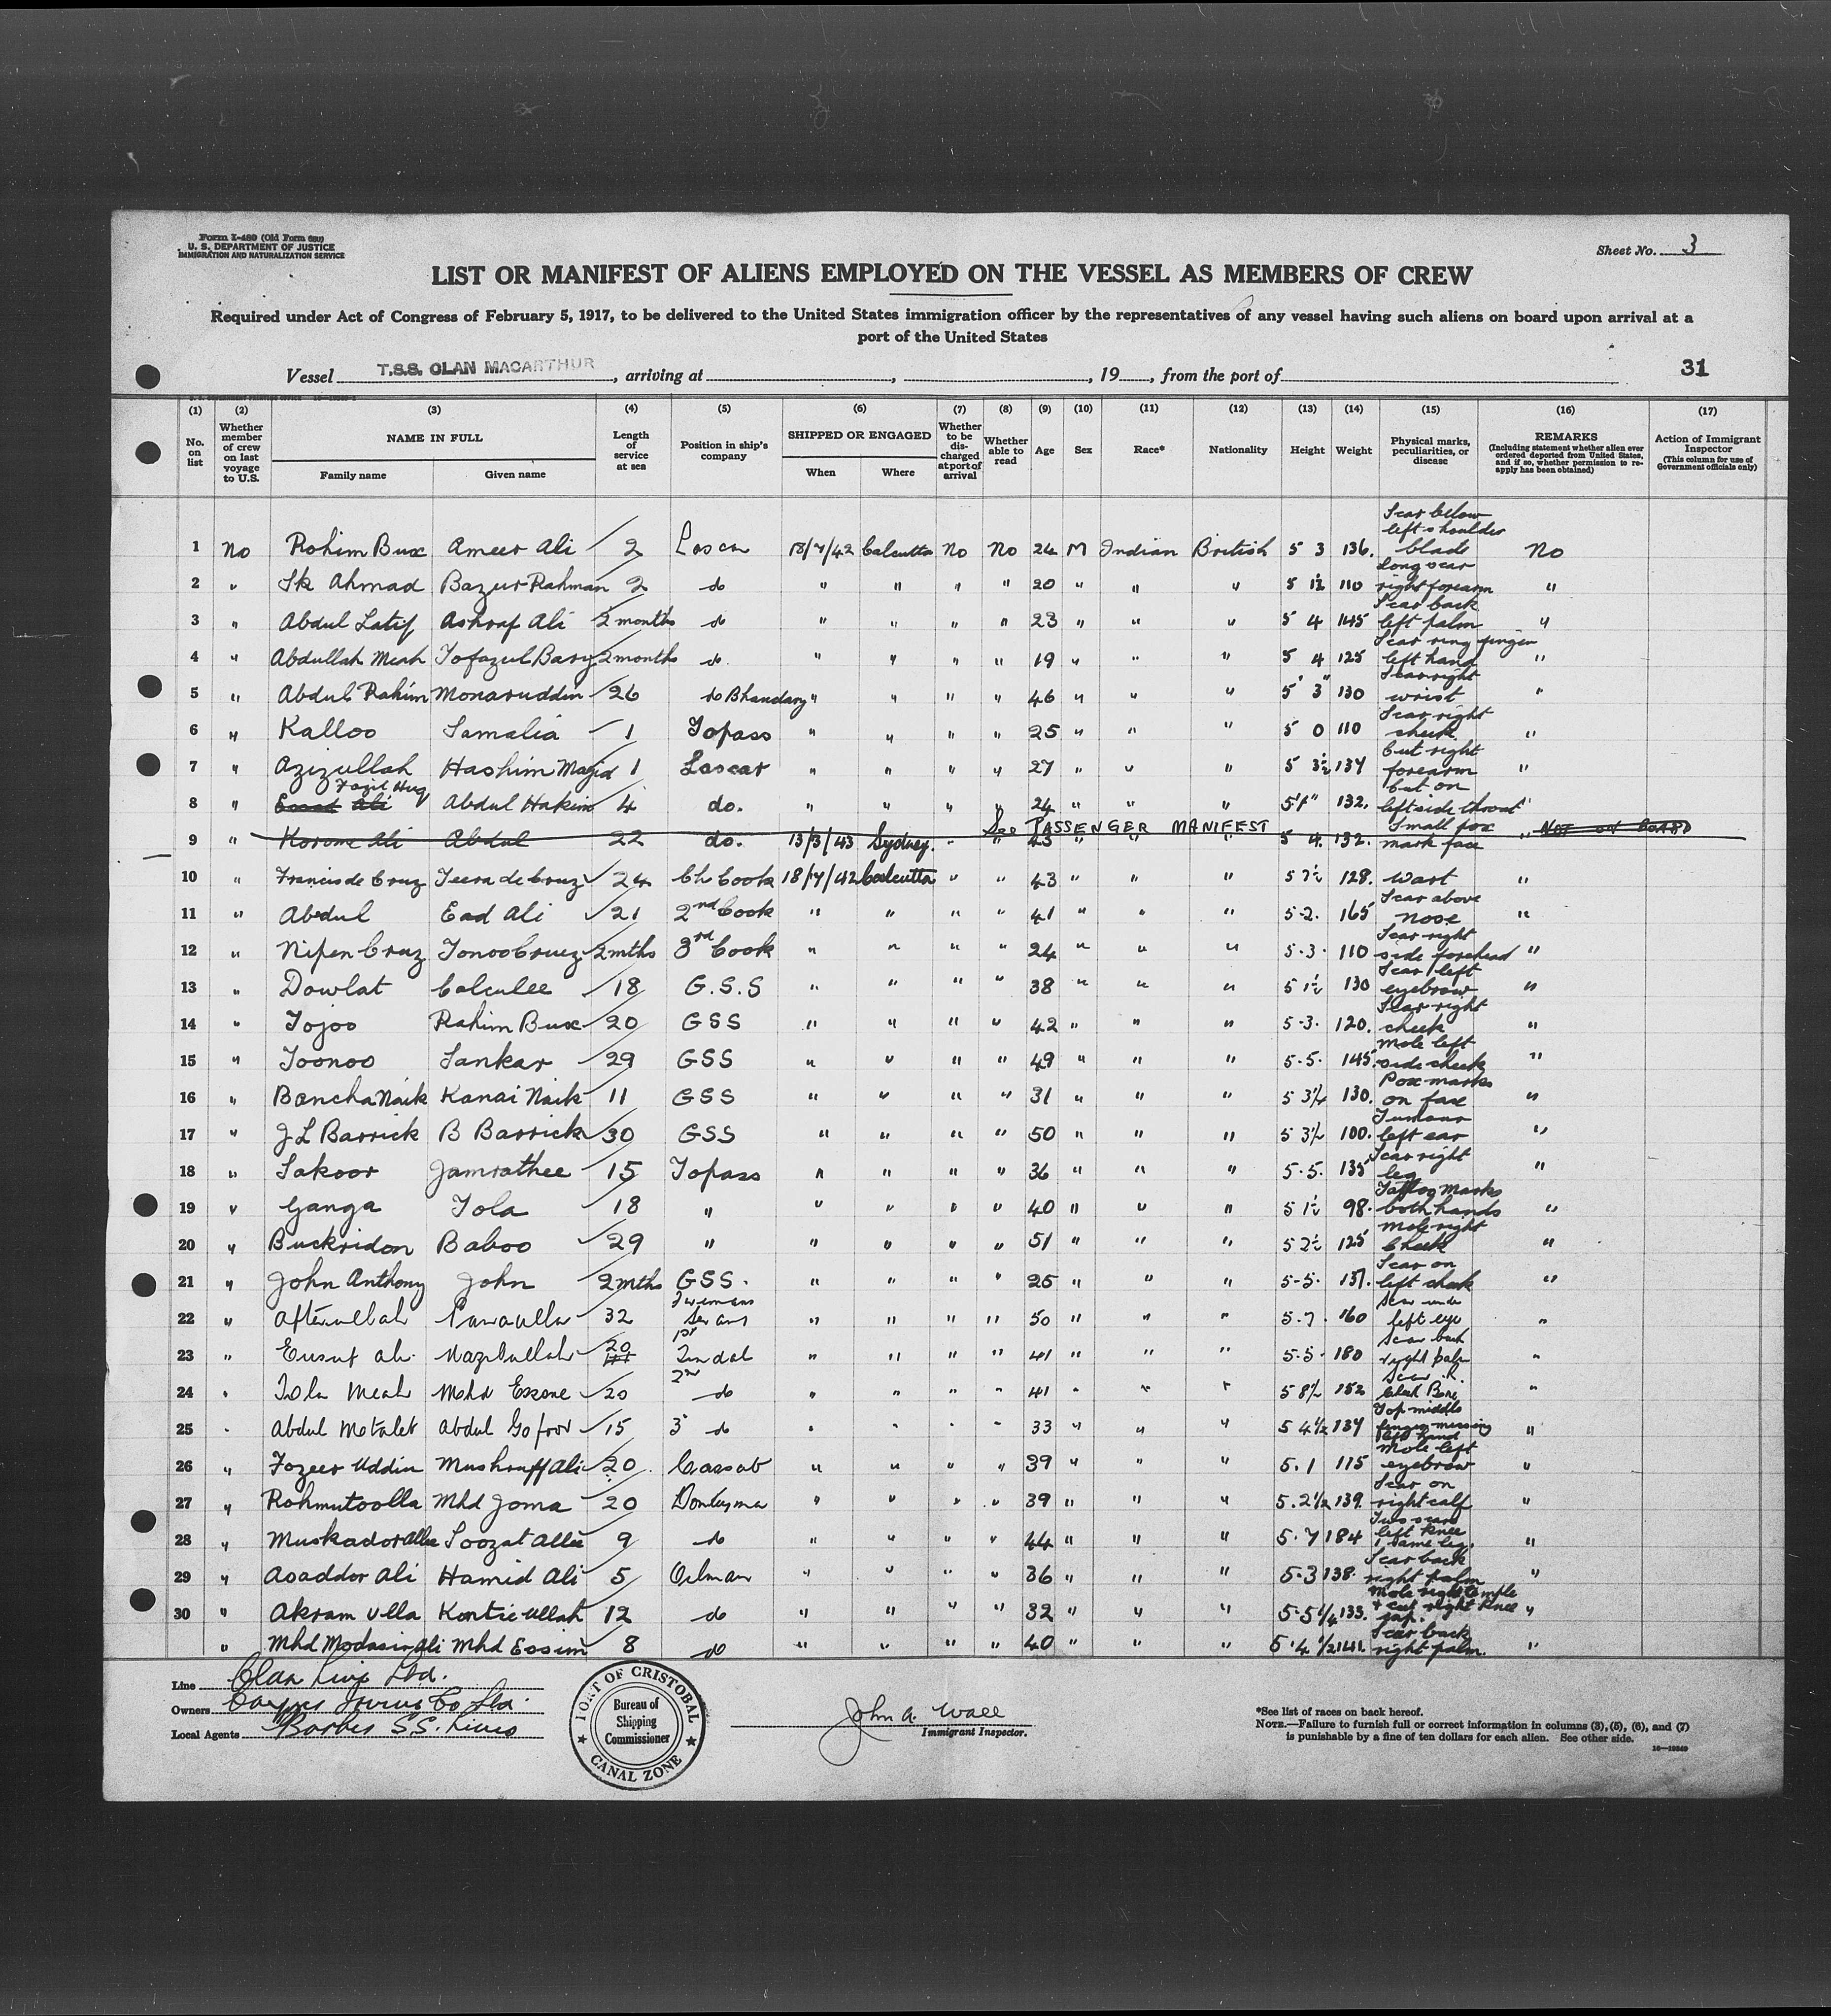 Form I-489 (Old Form 680)
U. S. DEPARTMENT OF JUSTICE
IMMIGRATION AND NATURALIZATION SERVICE
Sheet No. 3
LIST OR MANIFEST OF ALIENS EMPLOYED ON THE VESSEL AS MEMBERS OF CREW
Required under Act of Congress of February 5, 1917, to be delivered to the United States immigration officer by the representatives of any vessel having such aliens on board upon arrival at a
port of the United States
Vessel T.S.S. CLAN MACARTHUR, arriving at , , 19 , from the port of 31
(1) (2) (3) (4) (5) (6) (7) (8) (9) (10) (11) (12) (13) (14) (15) (16) (17)
No. on list Whether member of crew on last voyage to U.S. NAME IN FULL Family name Given name Length of service at sea Position in ship's company SHIPPED OR ENGAGED When Where Whether to be discharged at port of arrival Whether able to read Age Sex Race* Nationality Height Weight Physical marks, peculiarities, or disease REMARKS (Including statement whether alien ever ordered deported from United States, and if so, whether permission to re-apply has been obtained) Action of Immigrant Inspector (This column for use of Government officials only)
1 No Rohim Bux Ameer Ali 2 Lascar 18/7/42 Calcutta No No 24 M Indian British 5 3 136. Scar below left shoulder blade No
2 " Sk Ahmad Bazur Rahman 2 do " " " " 20 " " " 5 1½ 110 Long scar right forearm "
3 " Abdul Latif Ashraf Ali 2 months do " " " " 23 " " " 5 4 145 Scar back left palm "
4 " Abdullah Meah Tofazul Bary 2 months do. " " " " 19 " " " 5 4 125 Scar ring finger left hand "
5 " Abdul Rahim Monaruddin 26 do Bhandary " " " " 46 " " " 5' 3" 130 Scar right wrist "
6 " Kalloo Samalia 1 Topass " " " " 25 " " " 5 0 110 Scar right cheek "
7 " Azizullah Hashim Majid 1 Lascar " " " " 27 " " " 5 3½ 137 Cut right forearm "
8 " Fazil Huq Ali Abdul Hakim 4 do. " " " " 24 " " " 132. Cut on left side throat "
See PASSENGER MANIFEST
9 " Korom Ali Abdul 22 do. 13/3/43 Sydney. " " 43 " " " 5 4. 132. Small pox mark face " NOT ON BOARD
10 " Francis de Cruz Teera de Cruz 24 Ch Cook 18/7/42 Calcutta " " 43 " " " 5 7½ 128. Wart "
11 " Abdul Ead Ali 21 2nd Cook " " " " 41 " " " 5-2. 165 Scar above nose "
12 " Nipen Cruz Tonoo Cruez 2 mths 3rd Cook " " " " 24 " " " 5-3. 110 Scar right side forehead "
13 " Dowlat Calculee 18 G.S.S " " " " 38 " " " 5 1½ 130 Scar left eyebrow "
14 " Tojoo Rahim Bux 20 GSS " " " " 42 " " " 5-3. 120. Scar right cheek "
15 " Toonoo Sankar 29 GSS " " " " 49 " " " 5-5. 145. Mole left side cheek "
16 " Bancha Naik Kanai Naik 11 GSS " " " " 31 " " " 130. Pox marks on face "
17 " J L Barrick B Barrick 30 GSS " " " " 50 " " " 5 3½ 100. left ear "
18 " Sakoor Jamrathee 15 Topass " " " " 36 " " " 5-5. 135 Scar right leg "
19 " Ganga Tola 18 " " " " " 40 " " " 5 1½ 98. Tattoo Marks both hands "
20 " Buckridon Baboo 29 " " " " " 51 " " " 5 2½ 125 Mole right cheek "
21 " John Anthony John 2 mths GSS. " " " " 25 " " " 5-5. 137. Scar on left cheek "
22 " Afterullah 32 Firemans Serang " " " " 50 " " " 5-7. 160 Scar under left eye "
23 " Eusuf Ali Nazibullah 20 1st Tindal " " " " 41 " " " 5-5. 180 Scar back right palm "
24 " Tola Meah Mohd 20 2nd do " " " " 41 " " " 5 8½ 152 Scar R. Cheek Bone "
25 " Abdul Motaleb Abdul Gofoor 15 3 do " " " " 33 " " " 5 4½ 137 Top middle finger missing left hand "
26 " Fozeer Uddin Mushraff Ali 20 Cassab " " " " 39 " " " 5.1 115 Mole left eyebrow "
27 " Rohmutoolla Mhd Joma 20 Donkeyman " " " " 39 " " " 5.2½ 139. Scar on right calf "
28 " Muskador Allee Soozat Allee 9 do " " " " 44 " " " 5.7 184 Two scars left knee + same leg. "
29 " Asaddor Ali Hamid Ali 5 Oilman " " " " 36 " " " 5-3 138. Scar back right palm "
30 " Akram Ulla Kontie Ullah 12 do " " " " 32 " " " 5-5¼ 133. Mole right temple + cut right knee "
" Mhd Modasir Ali Mhd Essim 8 do " " " " 40 " " " 5-4½ 141. Scar back right palm. "
Line Clan Line Ltd.
Owners Cayzer Irvine Co Ltd.
Local Agents Barber S.S. Lines
PORT OF CRISTOBAL
Bureau of
Shipping
Commissioner
CANAL ZONE
John A. Wall
Immigrant Inspector.
*See list of races on back hereof.
NOTE.—Failure to furnish full or correct information in columns (3), (5), (6), and (7)
is punishable by a fine of ten dollars for each alien. See other side.